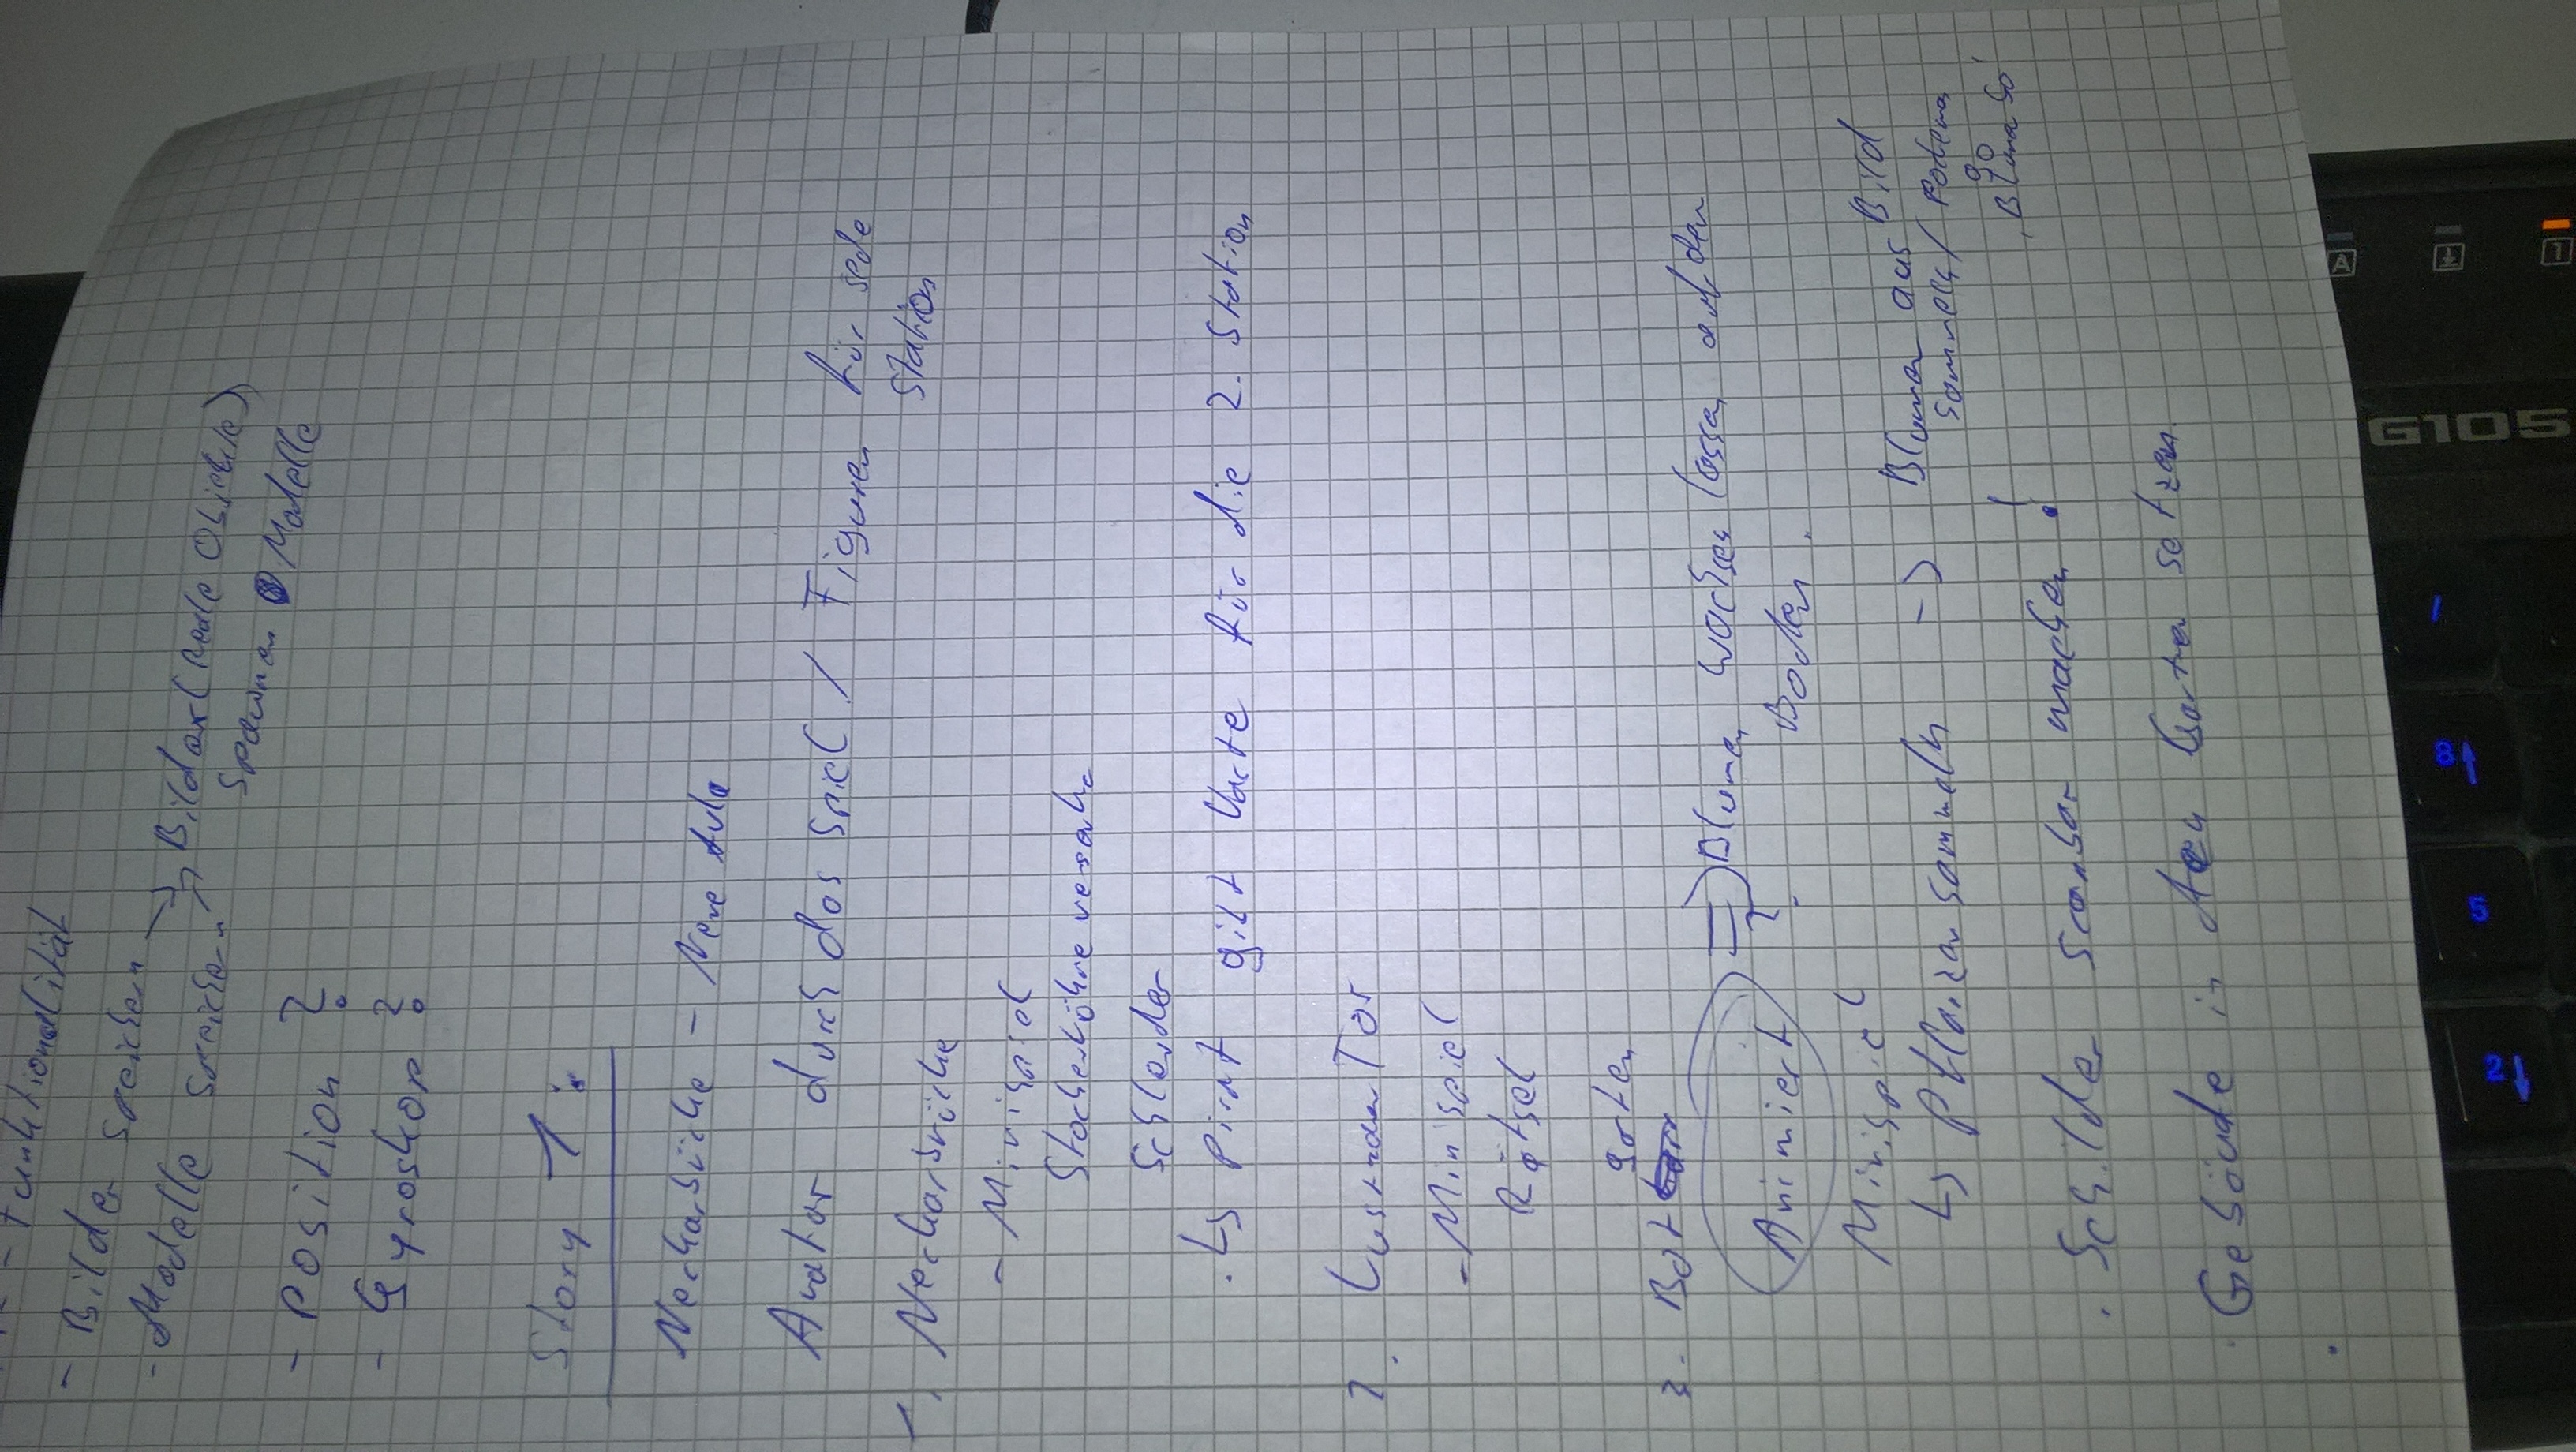 - Funktionalität
- Bilder speichern
- Modelle speichern → Bilder (Reale Objekte)
spawnen Modelle
- Position ?
- Gyroskop ?
Story 1:
Neckarbücke - Neue Aula
Avatar durch das Spiel / Figuren für jede
Station
1. Neckarbrücke
- Minispiel
Stocherkähne versenke
Schleuder
↳ Pirat gibt Karte für die 2. Station
2. Lustnauer Tor
- Minispiel
Rätsel
garten
3. Bot
Animiert ⇒ Blumen wachsen lassen auf den
? Boden.
Minispiel
↳ Pflanzen sammeln → Blumen aus Bild
sammeln /
Schilder scanbar machen !
Gebäude in den Garten setzen.
A
G105
2
5
8
1